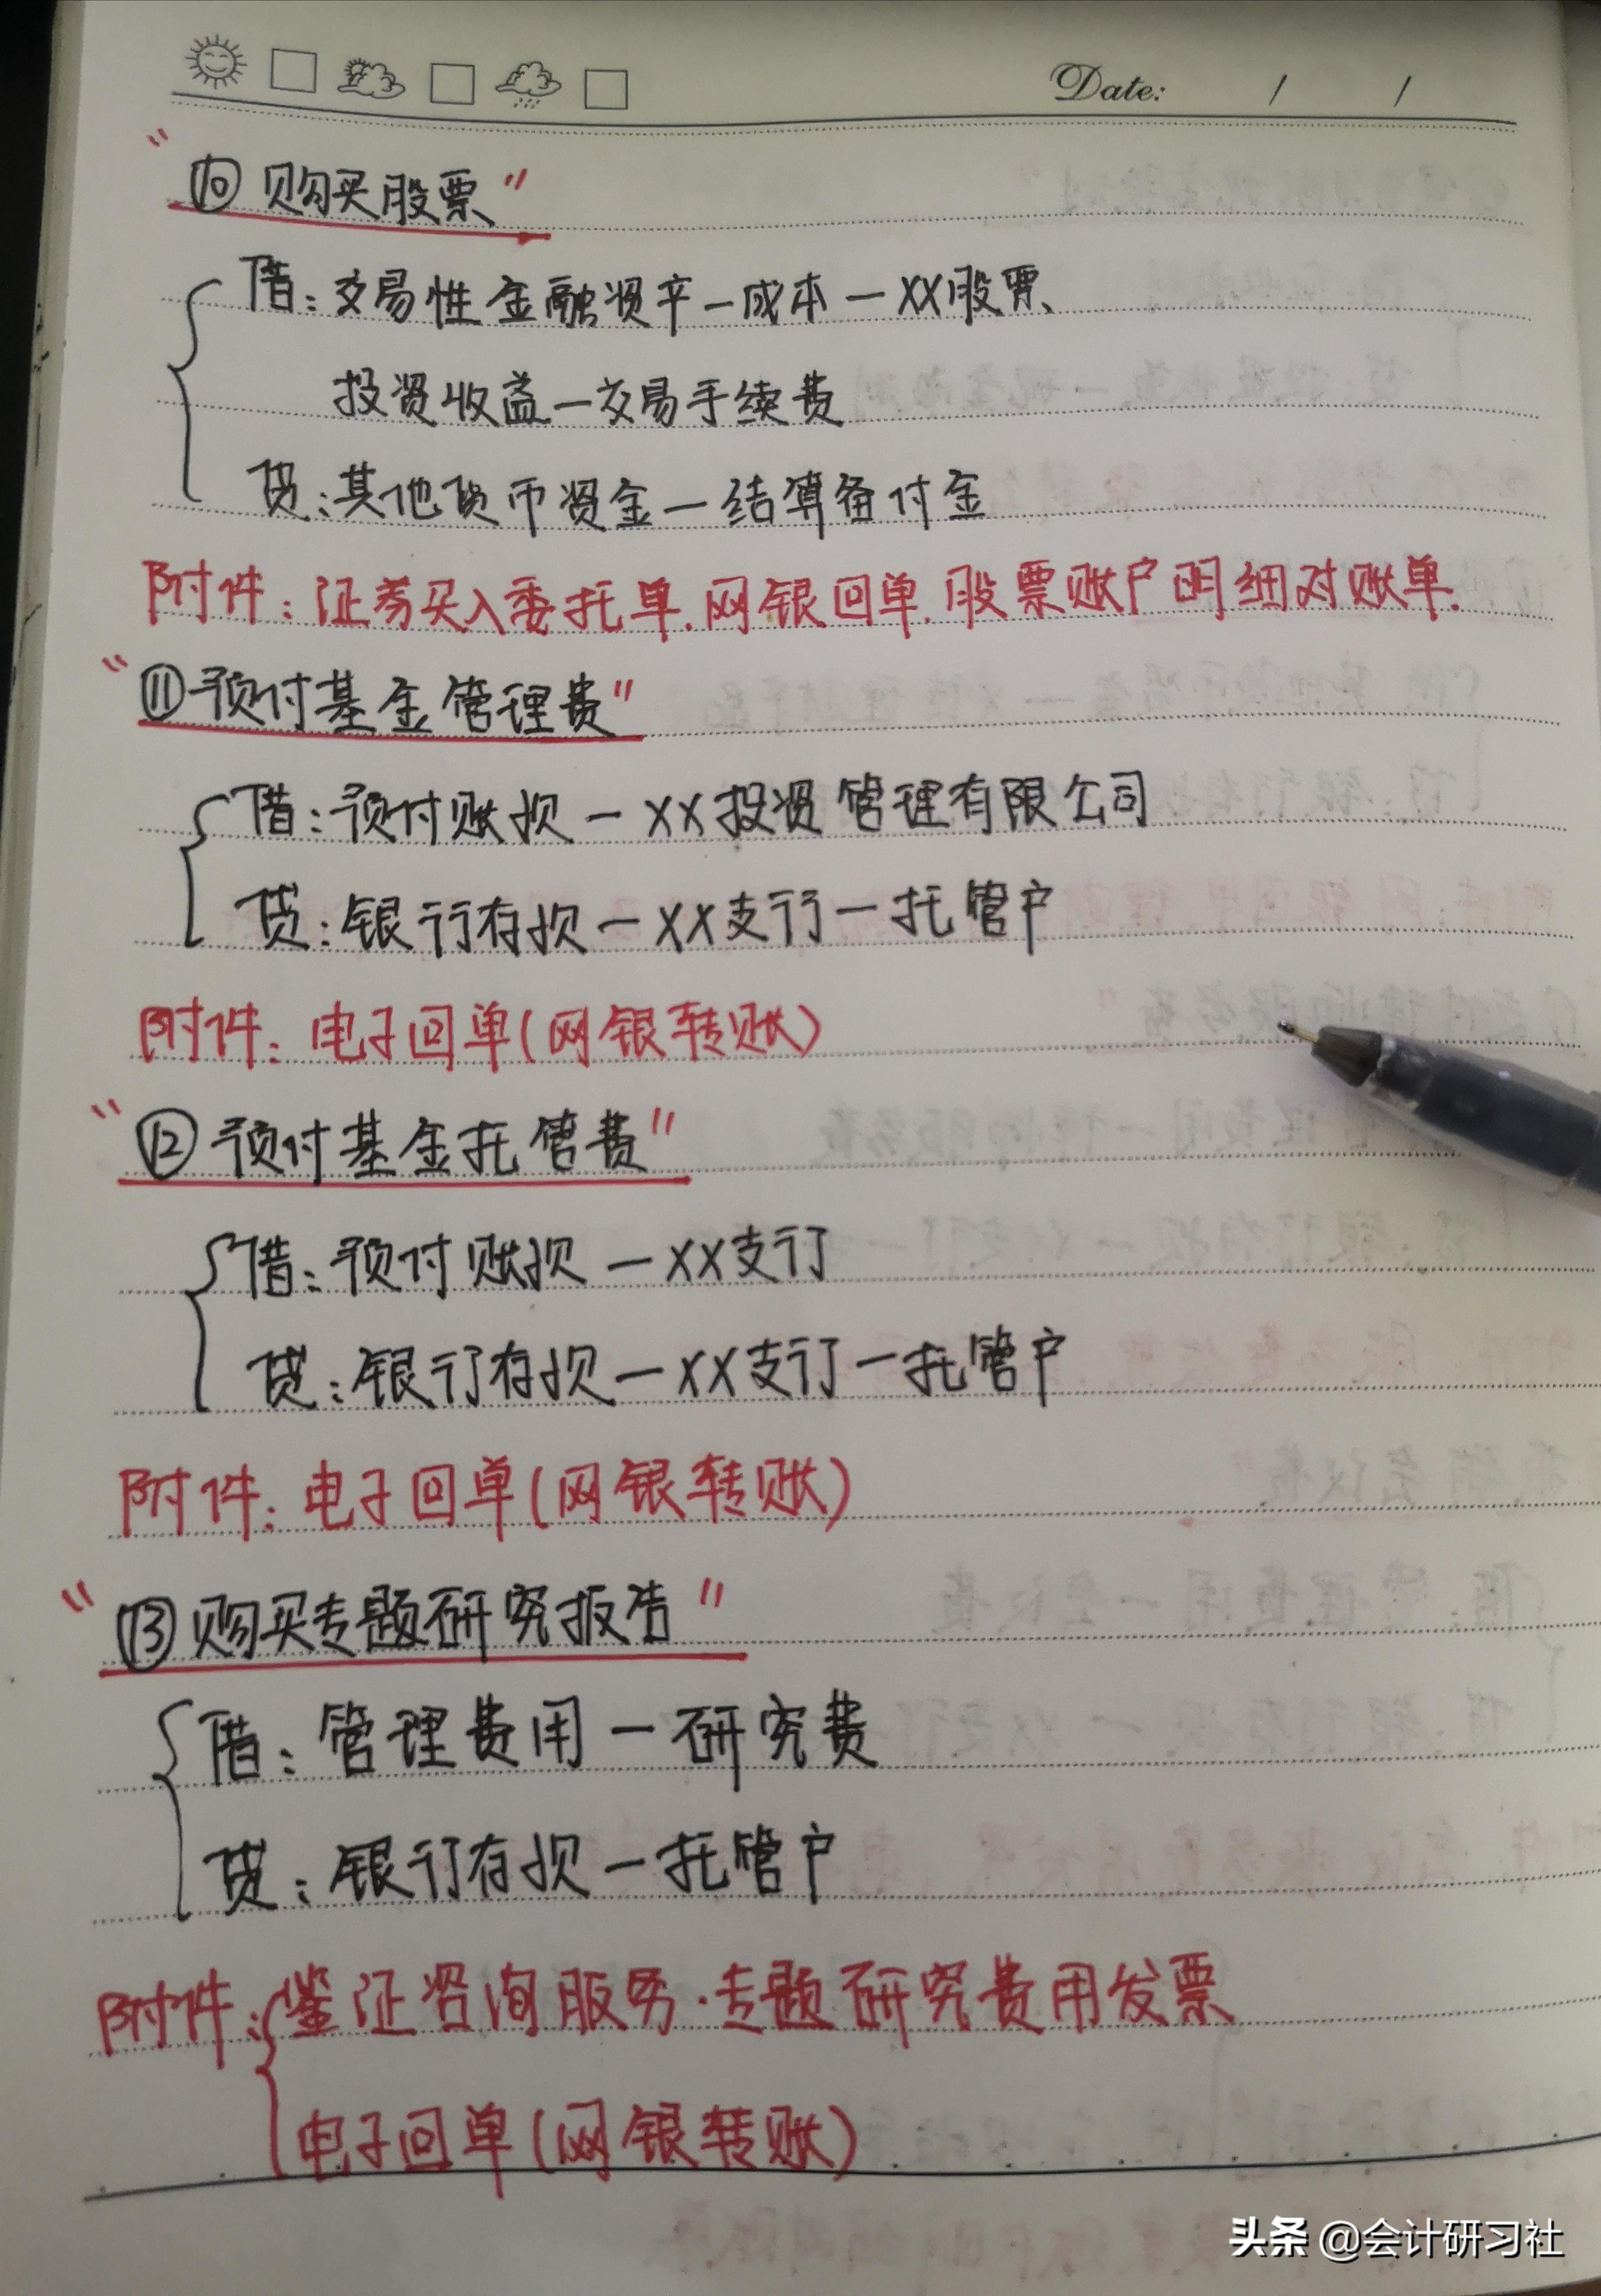 Date: / /
"⑩购买股票"
借:交易性金融资产—成本—XX股票、
投资收益—交易手续费
贷:其他货币资金—结算备付金
附件:证券买入委托单.网银回单.股票账户明细对账单.
"⑪预付基金管理费"
借:预付账款—XX投资管理有限公司
贷:银行存款—XX支行—托管户
附件:电子回单(网银转账)
"⑫预付基金托管费"
借:预付账款—XX支行
贷:银行存款—XX支行—托管户
附件:电子回单(网银转账)
"⑬购买专题研究报告"
借:管理费用—研究费
贷:银行存款—托管户
附件:鉴证咨询服务·专题研究费用发票
电子回单(网银转账)
头条 @会计研习社